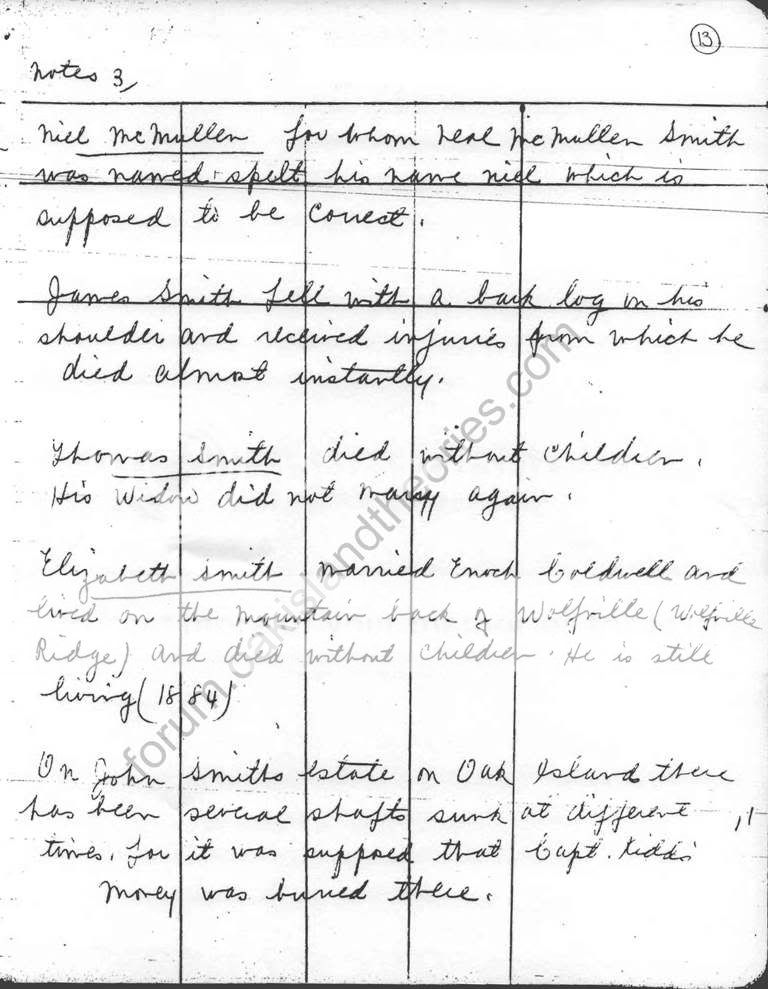 13
Notes 3,
Niel McMullen for whom Neal McMullen Smith
was named spelt his name Niel which is
supposed to be correct.
James Smith fell with a back log on his
shoulder and received injuries from which he
died almost instantly.
Thomas Smith died without children.
His Widow did not marry again.
Elizabeth Smith married Enoch Coldwell and
lived on the mountain back of Wolfville (Wolfville
Ridge) and died without children. He is still
living (1884)
On John Smiths estate on Oak Island there
has been several shafts sunk at different
times, for it was supposed that Capt. Kidds
money was buried there.
forum.oakislandtheories.com